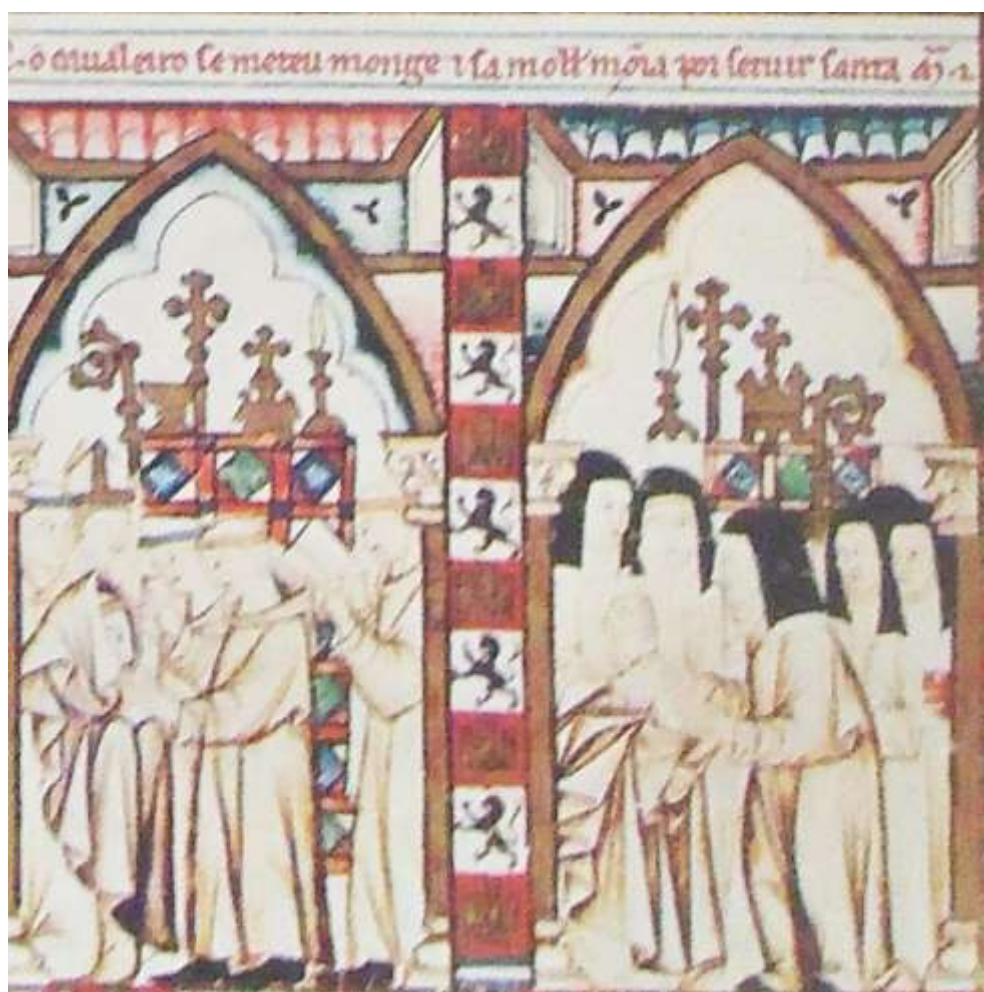 o caualeiro se meteu monge ⁊ sa moll' mõia por seruir santa m̃